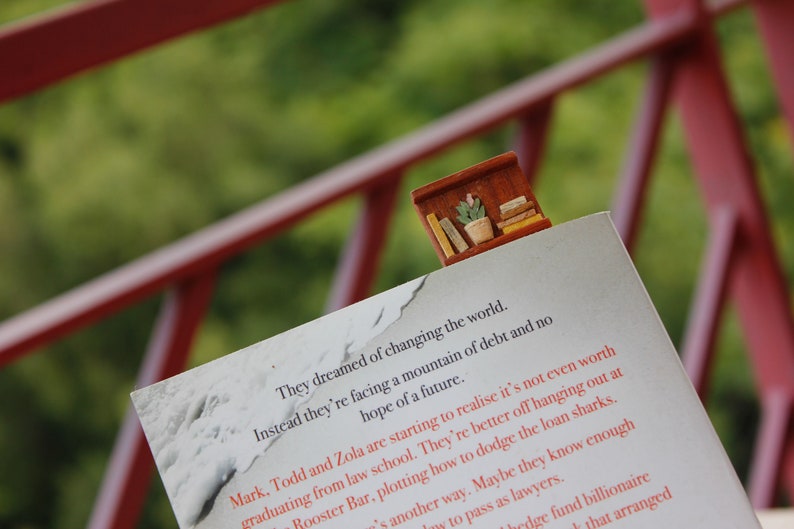 They dreamed of changing the world.
Instead they're facing a mountain of debt and no
hope of a future.
Mark, Todd and Zola are starting to realise it's not even worth
graduating from law school. They're better off hanging out at
Rooster Bar, plotting how to dodge the loan sharks.
another way. Maybe they know enough
to pass as lawyers.
hedge fund billionaire
that arranged